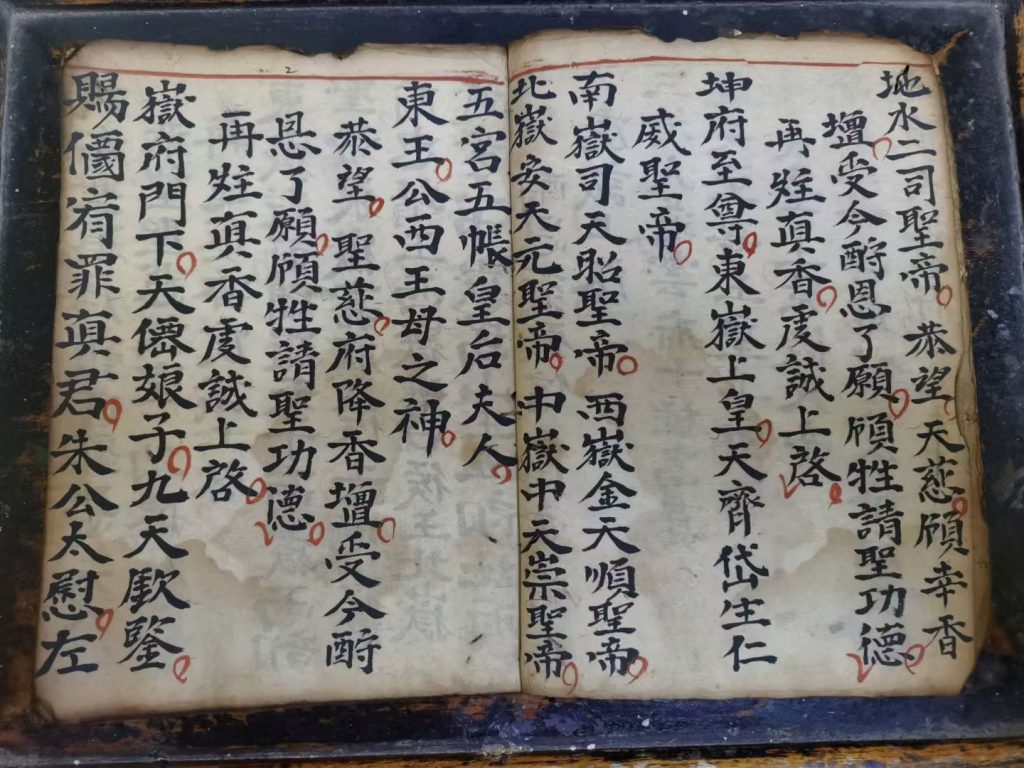 地水二司聖帝恭望天慈頋幸香
壇受今酧恩了願頋牲請聖功德
再炷真香虔誠上啓
坤府至尊東嶽上皇天齊岱生仁
威聖帝
南嶽司天昭聖帝西嶽金天順聖帝
北嶽安天元聖帝中嶽中天崇聖帝
五宮五帳皇后夫人
東王公西王母之神
恭望聖慈府降香壇受今酧
恩了願頋牲請聖功德
再炷真香虔誠上啓
嶽府門下天僊娘子九天欽鑒
賜宥罪真君朱公太慰左